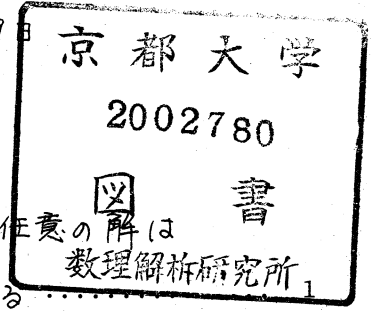 日
京都大学
2002780
図書
任意の解は
数理解析研究所
る ................ 1